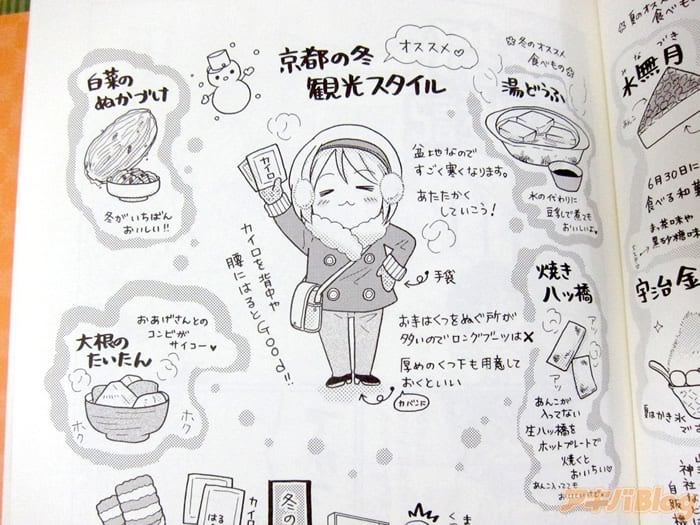 京都の冬
観光スタイル
オススメ♡
白菜の
ぬかづけ
冬がいちばん
おいしい!!
カイロ
盆地なので
すごく寒くなります。
あたたかく
していこう!
カイロを背中や
腰にはるとGood!!
手袋
お寺はくつをぬぐ所が
多いのでロングブーツは✕
厚めのくつ下も用意して
おくといい
カバンに
おあげさんとの
コンビが
サイコー♡
大根の
たいたん
ホク
ホク
☆冬のオススメ
食べもの☆
湯どうふ
水の代わりに
豆乳で煮ても
おいしいよ
焼き
八ッ橋
アッ
アッ
あんこが
入ってない
生八ッ橋を
ホットプレートで
焼くと
おいちい♡
あんこ入っても
カイロ
はる
冬の
☆夏のオススメ
食べもの
みなづき
水無月
あんこ
6月30日に
食べる和菓
まっ茶味や
黒砂糖味
宇治金
夏はかき氷
で
神社
自販
アキバBlog